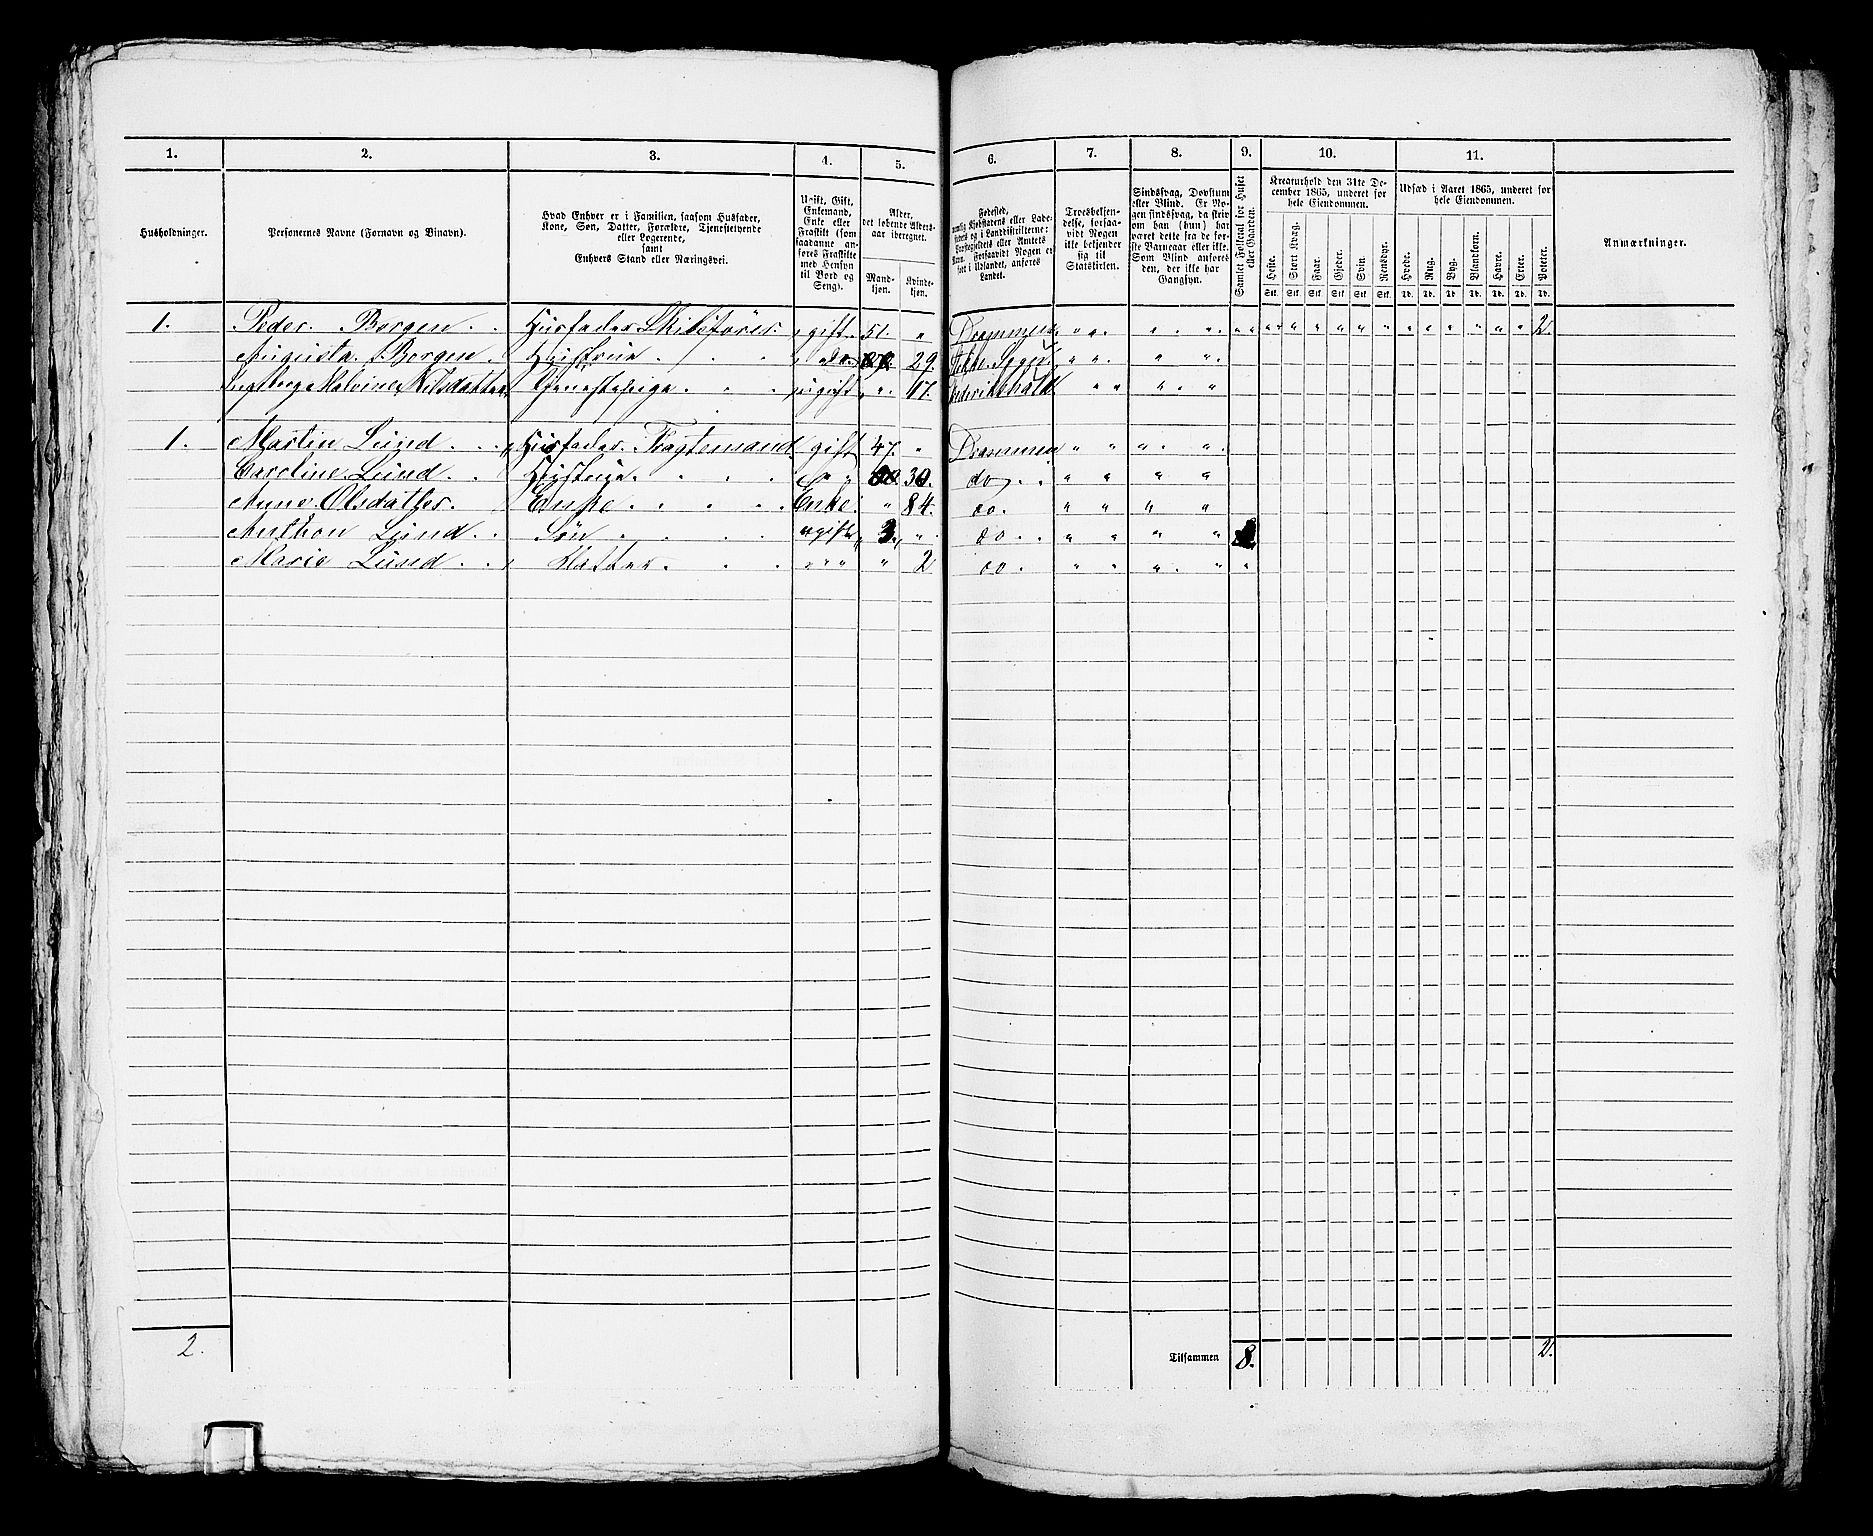 1. 2. 3. 4. 5. 6. 7. 8. 9. 10. 11.
Husholdninger.
Personernes Navne (Fornavn og Binavn).
Hvad Enhver er i Familien, saasom Husfader,
Kone, Søn, Datter, Forældre, Tjenestetyende
eller Logerende,
samt
Enhvers Stand eller Næringsvei.
Ugift, Gift,
Enkemand,
Enke eller
Fraskilt (som
saadanne an-
føres Fraskilte
med Hensyn
til Bord og
Seng).
Alder,
det løbende Alders-
aar iberegnet.
Mand-
kjøn.
Kvinde-
kjøn.
Fødested,
Kjøbstadens eller Lade-
stedets og i Landdistrikterne:
Præstegjeldets eller Amtets
Navn. Forsaavidt Nogen er
født i Udlandet, anføres
Landet.
Troesbekjen-
delse, forsaa-
vidt Nogen
ikke bekjender
sig til
Statskirken.
Sindssvag, Døvstum
eller Blind. Er No-
gen sindssvag, da skriv
om han (hun) har
været dette fra de før-
ste Barneaar eller ikke.
Som Blind anføres
den, der ikke har
Gangsyn.
Samlet Folketal for Huset
eller Gaarden.
Kreaturhold den 31te De-
cember 1865, underet for
hele Eiendommen.
Heste. Stort Kvæg. Faar. Gjeder. Svin. Rensdyr.
Stk. Stk. Stk. Stk. Stk. Stk.
Udsæd i Aaret 1865, underet for
hele Eiendommen.
Hvede. Rug. Byg. Blandkorn. Havre. Erter. Poteter.
Td. Td. Td. Td. Td. Td. Td.
Anmærkninger.
1. Peder Borgen Husfader gift 51. " Drammen " " " " " " " " " " " " " " " " " " 2.
Augusta Borgen Hustrue 29. " " " "
Ingeborg Malvine Nilsdatter Tjenestepige ugift " 17. Frederikshald " " " "
1. Martin Lund Husfader Fragtemand gift 47. " Drammen " " " "
Caroline Lund Hustrue " " 30. do " " " "
Anne Olsdatter Enke Enke " 84. do. " " " "
Anthon Lund Søn ugift " 3. " do " " " "
Marie Lund Datter " " " 2 do. " " " " "
2. Tilsammen 8. 2.